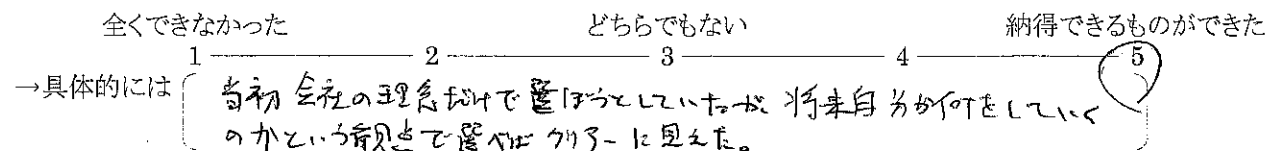 全くできなかった どちらでもない 納得できるものができた
1 2 3 4 5
→具体的には 当初会社の理念だけで選ぼうとしていたが、将来自分が何をしていく
のかという観点で選べばクリアーに見えた。